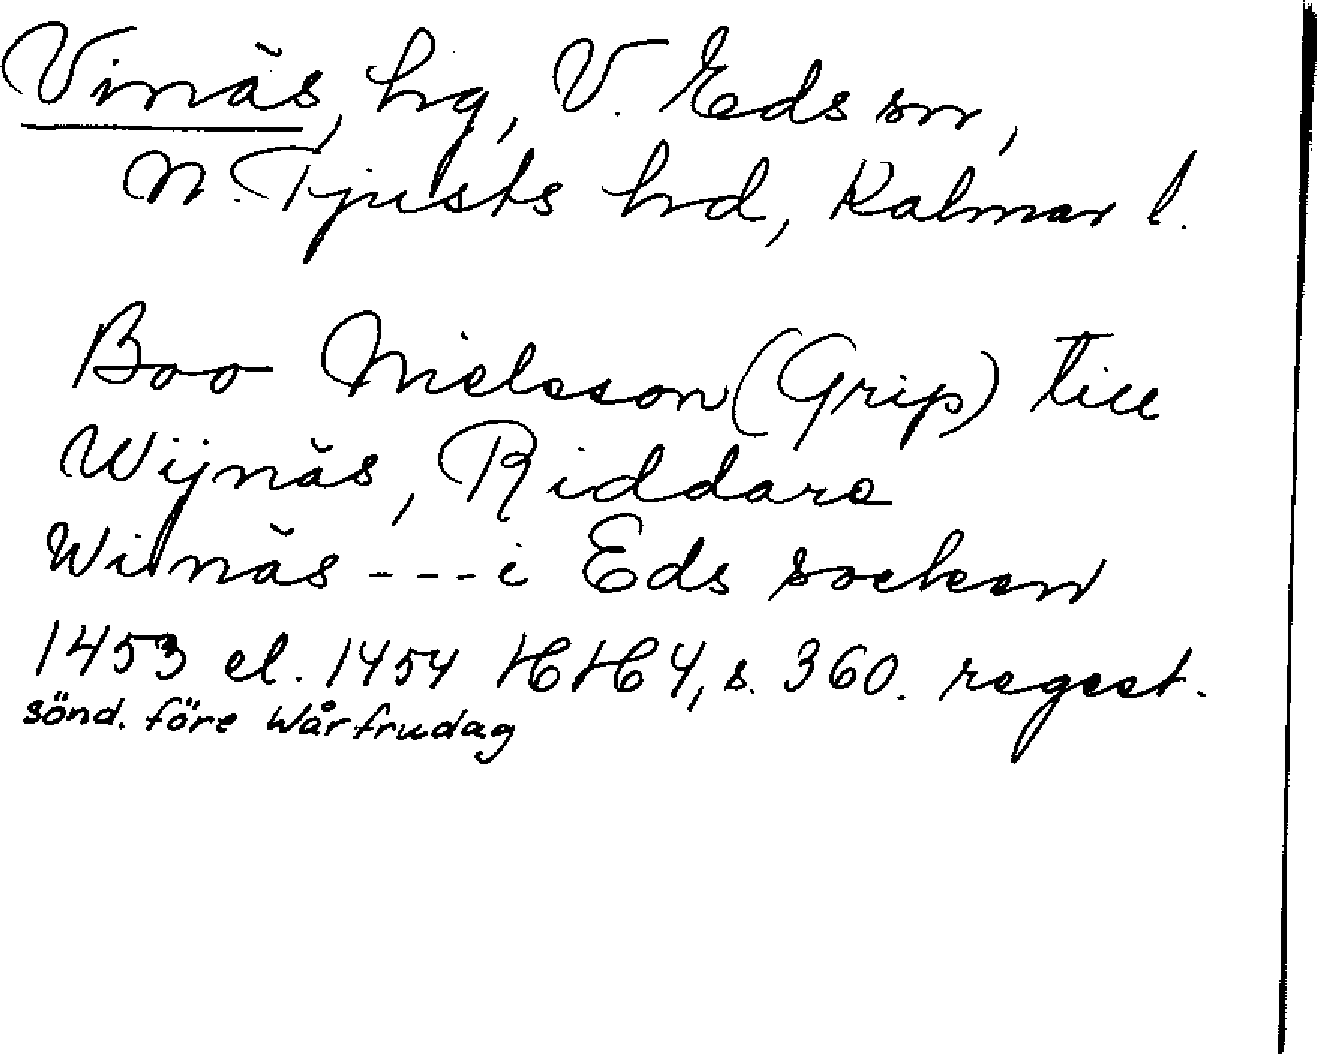 Vinäs, hg, V. Eds sn,
N. Tjusts hd, Kalmar l.
Boo Nielsson (Grip) till
Wijnäs, Riddare
Wijnäs --- i Eds socken
1453 el. 1454 HH 4, s. 360. regest.
sönd. före Wårfrudag